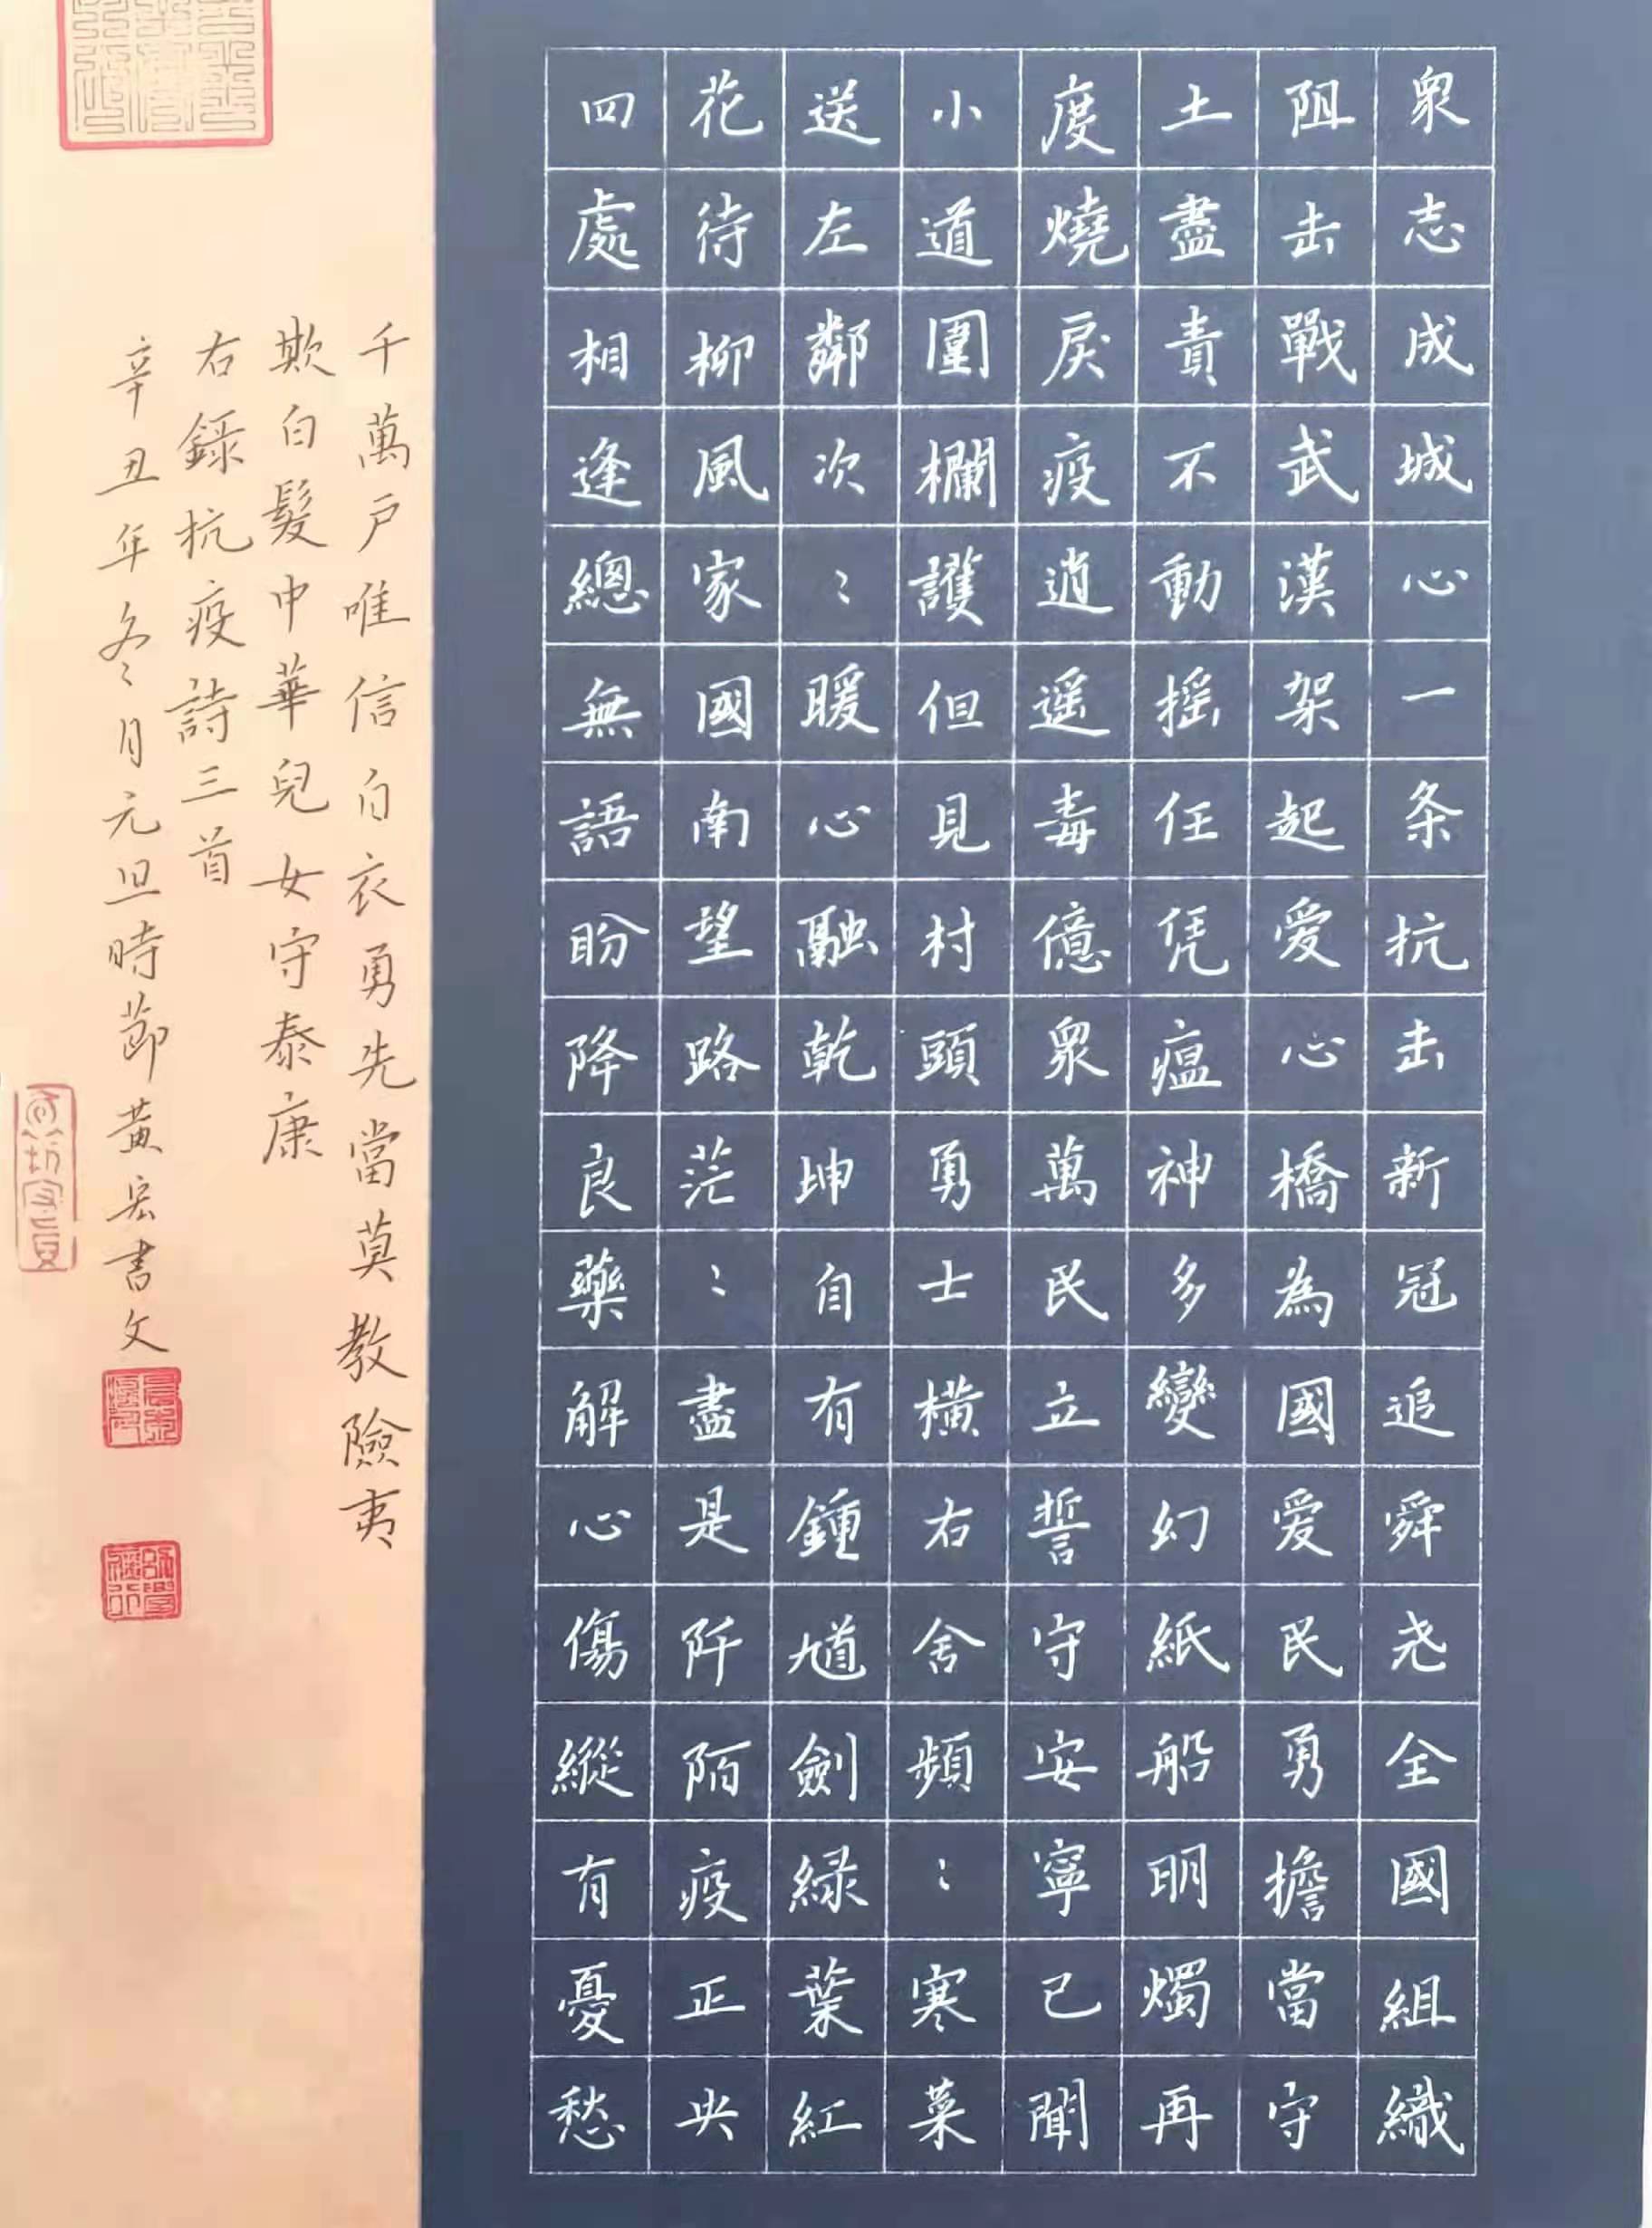 眾志成城心一条抗击新冠追舜尧全國組織
阻击戰武漢架起爱心橋為國爱民勇擔當守
土盡責不動摇任凭瘟神多變幻紙船明燭再
度燒戾疫逍遥毒億眾萬民立誓守安寧已聞
小道圍欄護但見村頭勇士横右舍頻〻寒菜
送左鄰次〻暖心融乾坤自有鍾馗劍緑葉紅
花待柳風家國南望路茫〻盡是阡陌疫正央
四處相逢總無語盼降良藥解心傷縱有憂愁
千萬户唯信白衣勇先當莫教險夷
欺白髮中華兒女守泰康
右録抗疫詩三首
辛丑年冬月元旦時節黄宏書文